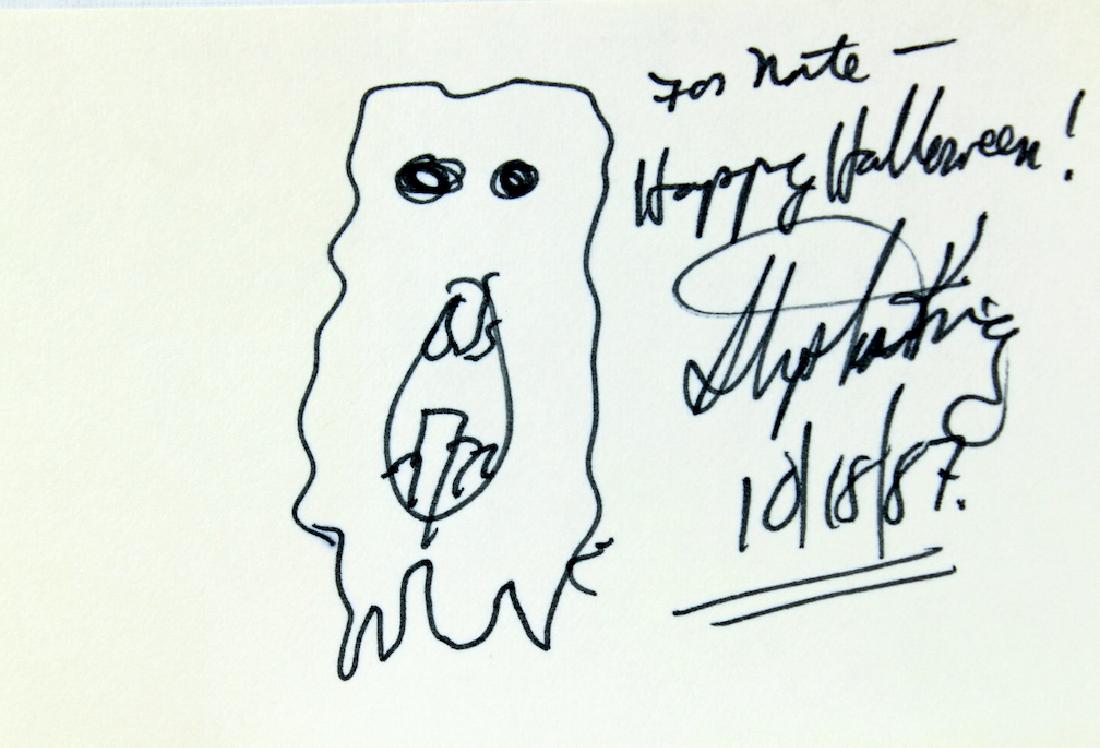 For Nate —
Happy Halloween!
Stephen King
10/18/87.